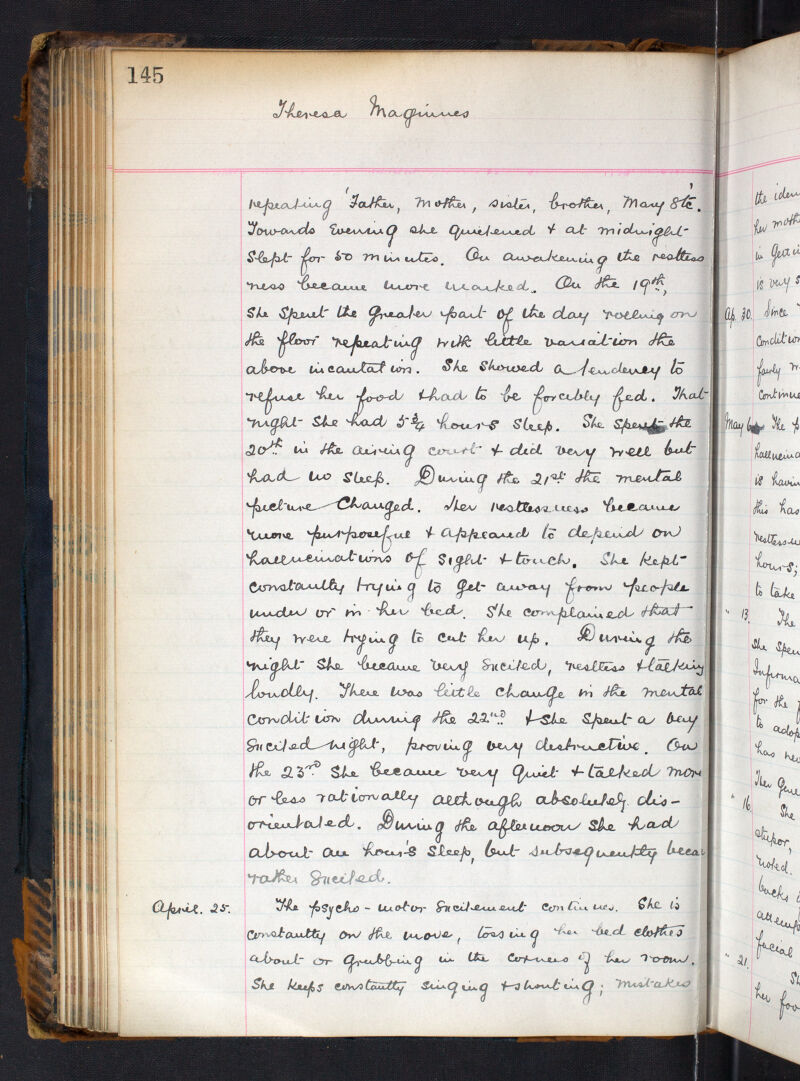 145
Theresa Maginnes
repeating 'Father, Mother, sister, brother, Mary &tc.'
Towards Evening she quietened & at midnight
slept for 50 minutes. On awakening the restless
ness became more marked. On the 19th,
she spent the greater part of the day rolling on
the floor repeating with little variation the
above incantation. She showed a tendency to
refuse her food & had to be forcibly fed. That
night she had 5 3/4 hours sleep. She spent the
20th in the airing court & did very well but
had no sleep. During the 21st the mental
picture changed. Her restlessness became
more purposeful & appeared to depend on
hallucinations of sight & touch. She kept
constantly trying to get away from people
under or in her bed. She complained that
they were trying to cut her up. During the
night she became very excited, restless & talking
loudly. There was little change in the mental
condition during the 22nd & she spent a very
excited night, proving very destructive. On
the 23rd she became very quiet & talked more
or less rationally although absolutely dis-
orientated. During the afternoon she had
about an hour's sleep, but subsequently beca
rather excited.
April. 25. The psycho-motor excitement continues. She is
constantly on the move, tossing her bed clothes
about or grubbing in the corners of her room.
She keeps constantly singing & shouting; mistakes
the iden
her moth
in
is very s
Ap. 30. Since
condition
fairly
continue
May 6 The
hallucina
is havin
this has
restless
hours;
to take
" 13. The
she spen
Infirma
for the
to adop
has
Her Gene
" 16. She
stupor,
noted.
attemp
facial
" 21. Sh
her foo